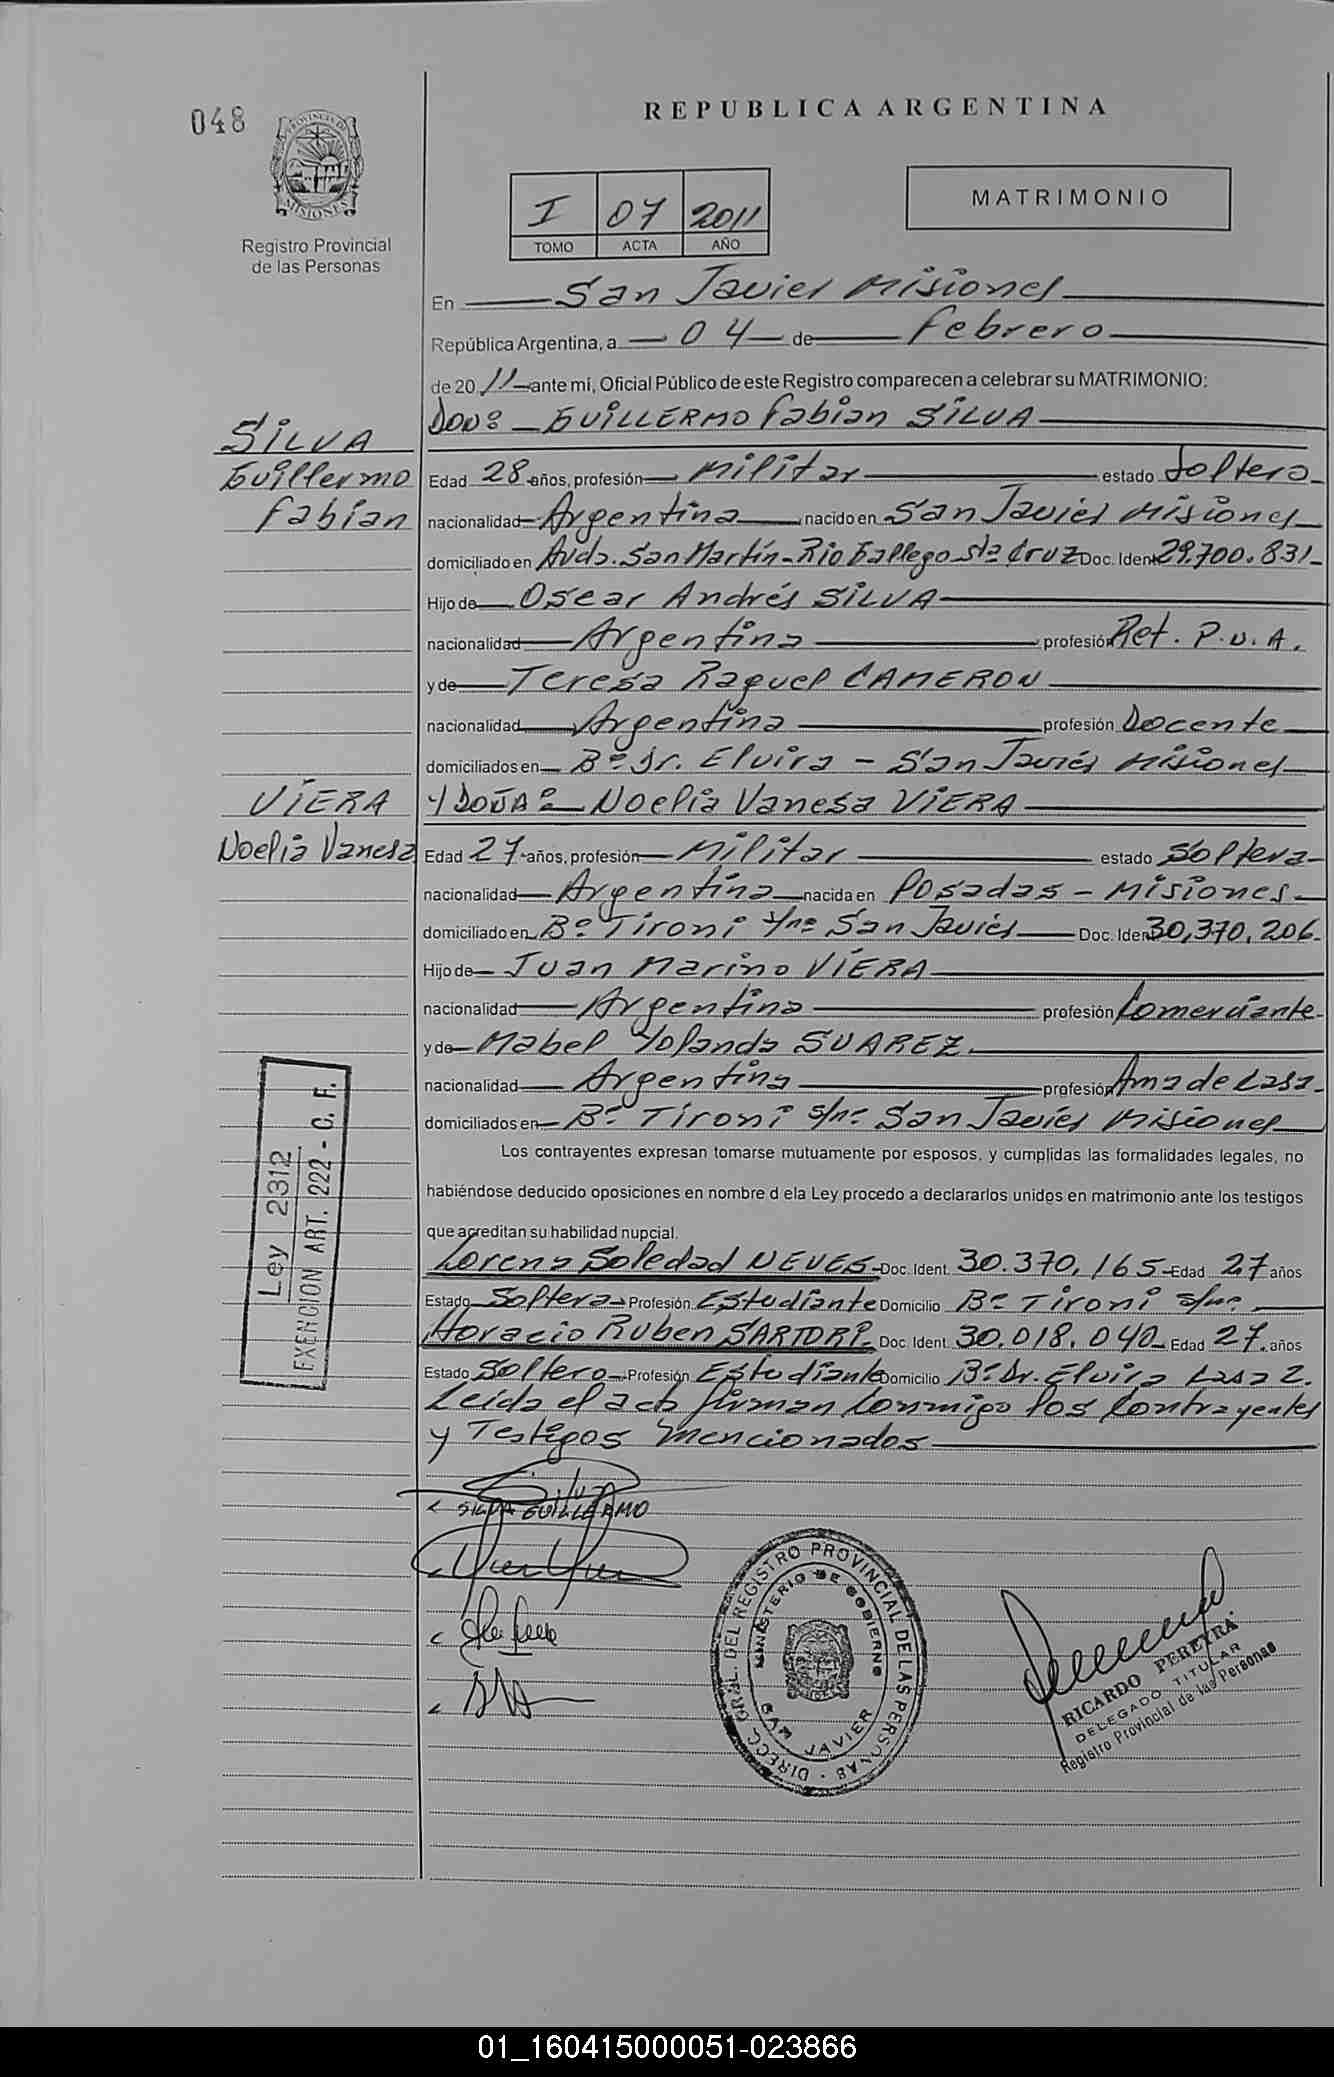 048
PROVINCIA DE
MISIONES
Registro Provincial
de las Personas
REPUBLICA ARGENTINA
I 07 2011
TOMO ACTA AÑO
MATRIMONIO
En San Javier Misiones
República Argentina, a 04 de Febrero
de 20 11 ante mi, Oficial Público de este Registro comparecen a celebrar su MATRIMONIO:
SILVA
Guillermo
Fabian
DON: GUILLERMO Fabian SILVA
Edad 28 años, profesión Militar estado Soltero
nacionalidad Argentina nacido en San Javier Misiones
domiciliado en Avda. San Martín - Rio Gallego Sta Cruz Doc. Ident 29.700.831
Hijo de Oscar Andrés SILVA
nacionalidad Argentina profesión Ret. P.N.A.
y de Teresa Raquel CAMERON
nacionalidad Argentina profesión Docente
domiciliados en Bº Sr. Elvira - San Javier Misiones
VIERA
Noelia Vanesa
Y DOÑA: Noelia Vanesa VIERA
Edad 27 años, profesión Militar estado Soltera
nacionalidad Argentina nacida en Posadas - Misiones
domiciliado en Bº Tironi s/nº San Javier Doc. Iden 30,370,206
Hijo de Juan Marino VIERA
nacionalidad Argentina profesión Comerciante
y de Mabel Yolanda SUAREZ
nacionalidad Argentina profesión Ama de casa
domiciliados en Bº Tironi s/nº San Javier Misiones
Los contrayentes expresan tomarse mutuamente por esposos, y cumplidas las formalidades legales, no
habiéndose deducido oposiciones en nombre d ela Ley procedo a declararlos unidos en matrimonio ante los testigos
que acreditan su habilidad nupcial.
Ley 2312
EXENCION ART. 222 - C. F.
Lorena Soledad NEVES Doc. Ident. 30.370,165 Edad 27 años
Estado Soltera Profesión Estudiante Domicilio Bº Tironi s/nº
Horacio Ruben SARTORI Doc. Ident. 30.018.040 Edad 27. años
Estado Soltero Profesión Estudiante Domicilio Bº Dr. Elvira casa 2.
Leida el acta firman conmigo los contrayentes
y Testigos mencionados
SILVA GUILLERMO
DIRECC. GRAL. DEL REGISTRO PROVINCIAL DE LAS PERSONAS
MINISTERIO DE GOBIERNO
SAN JAVIER
RICARDO PEREYRA
DELEGADO TITULAR
Registro Provincial de las Personas
01_160415000051-023866